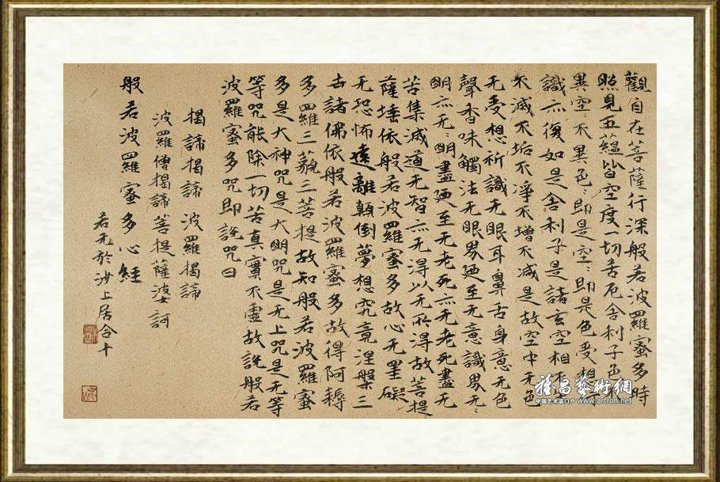 觀自在菩薩行深般若波羅蜜多時
照見五蘊皆空度一切苦厄舍利子色
異空〻不異色〻即是空〻即是色受想
識亦復如是舍利子是諸法空相
不滅不垢不淨不增不減是故空中无色
无受想行識无眼耳鼻舌身意无色
聲香味觸法无眼界廼至无意識界无
明亦无〻明盡廼至无老死亦无老死盡无
苦集滅道无智亦无得以无所得故菩提
薩埵依般若波羅蜜多故心无罣礙
无恐怖遠離顛倒夢想究竟涅槃三
世諸佛依般若波羅蜜多故得阿耨
多羅三藐三菩提故知般若波羅蜜
多是大神咒是大明咒是无上咒是无等
等咒能除一切苦真實不虛故說般若
波羅蜜多咒即說咒曰
揭諦揭諦 波羅揭諦
波羅僧揭諦菩提薩婆訶
般若波羅蜜多心經
若无於沙上居合十
雅昌藝術網
www.artron.net